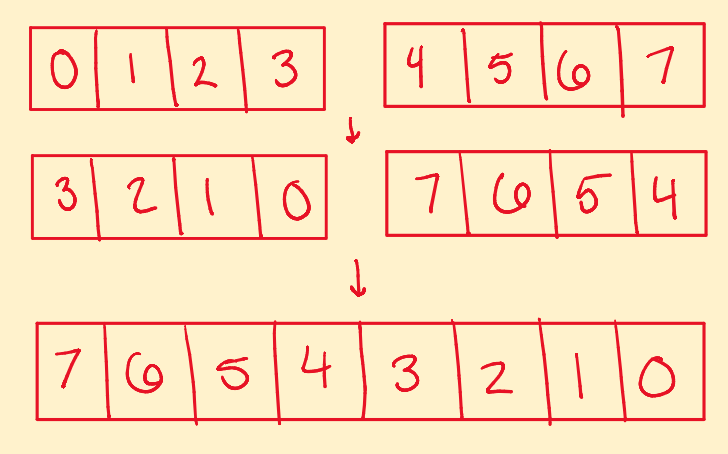 0 1 2 3 4 5 6 7
3 2 1 0 7 6 5 4
7 6 5 4 3 2 1 0